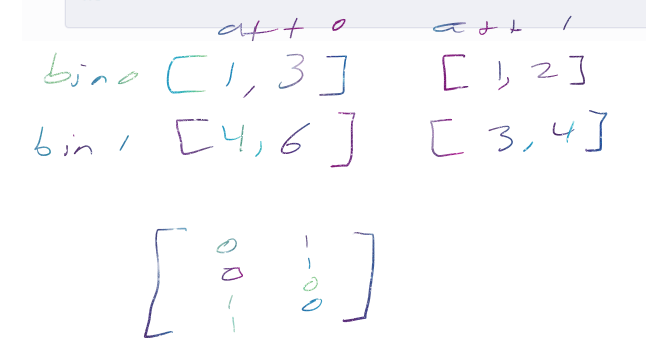 att 0 att 1
bin 0 [1, 3] [1, 2]
bin 1 [4, 6] [3, 4]
0 1
0 1
1 0
1 0